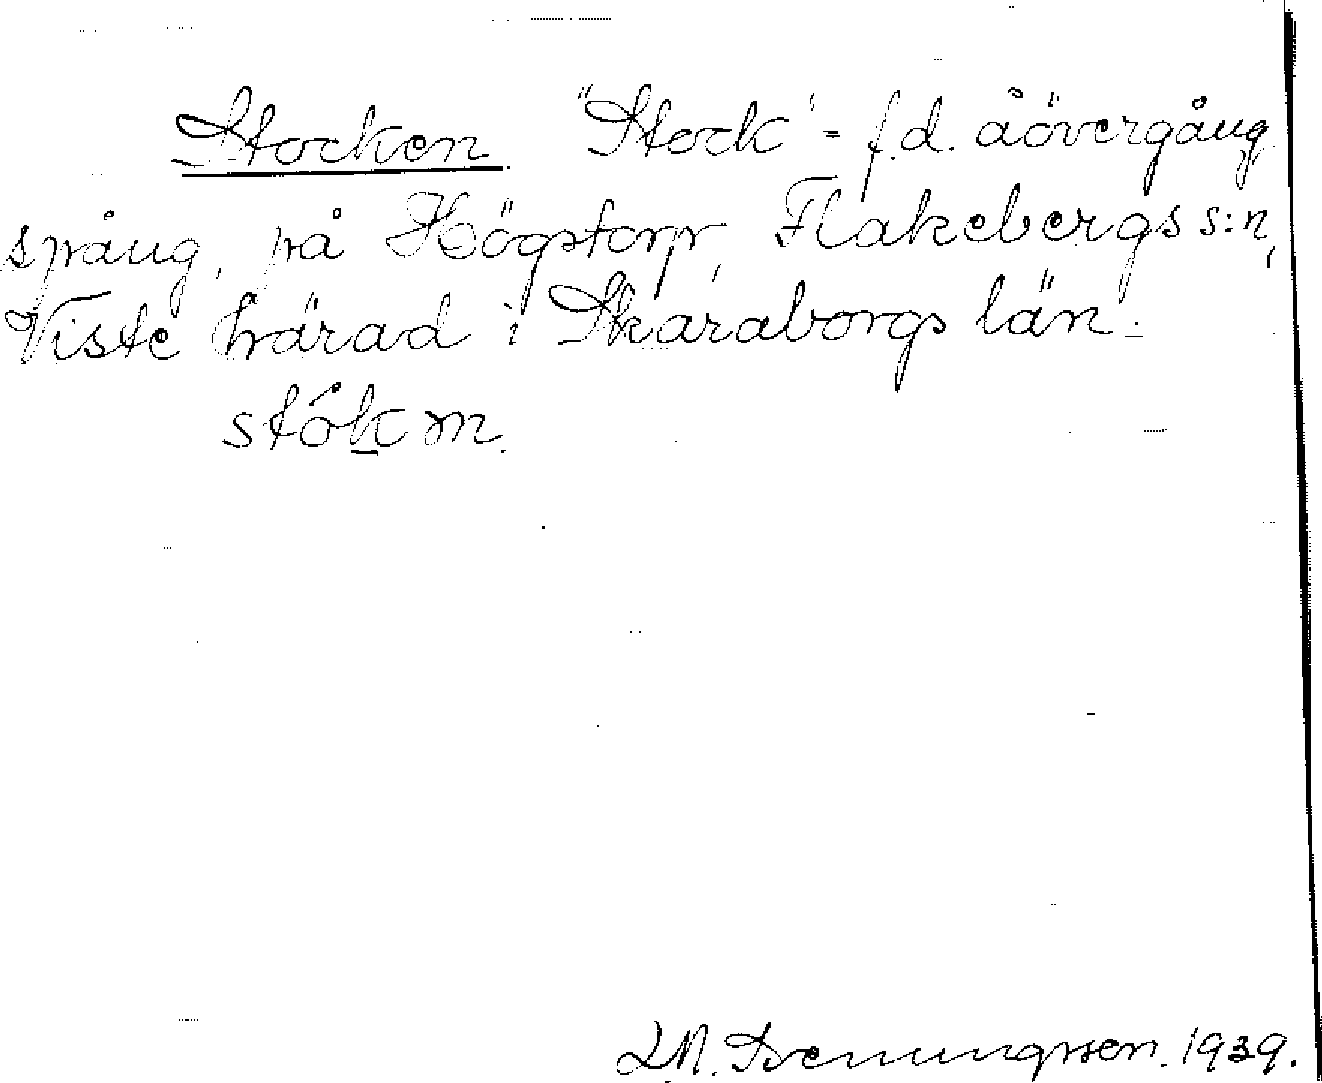 Stocken. "Stock" - f.d. åövergång
spång, på Högstorp, Flakebergs s:n,
Viste härad i Skaraborgs län.
stók m.
1939.